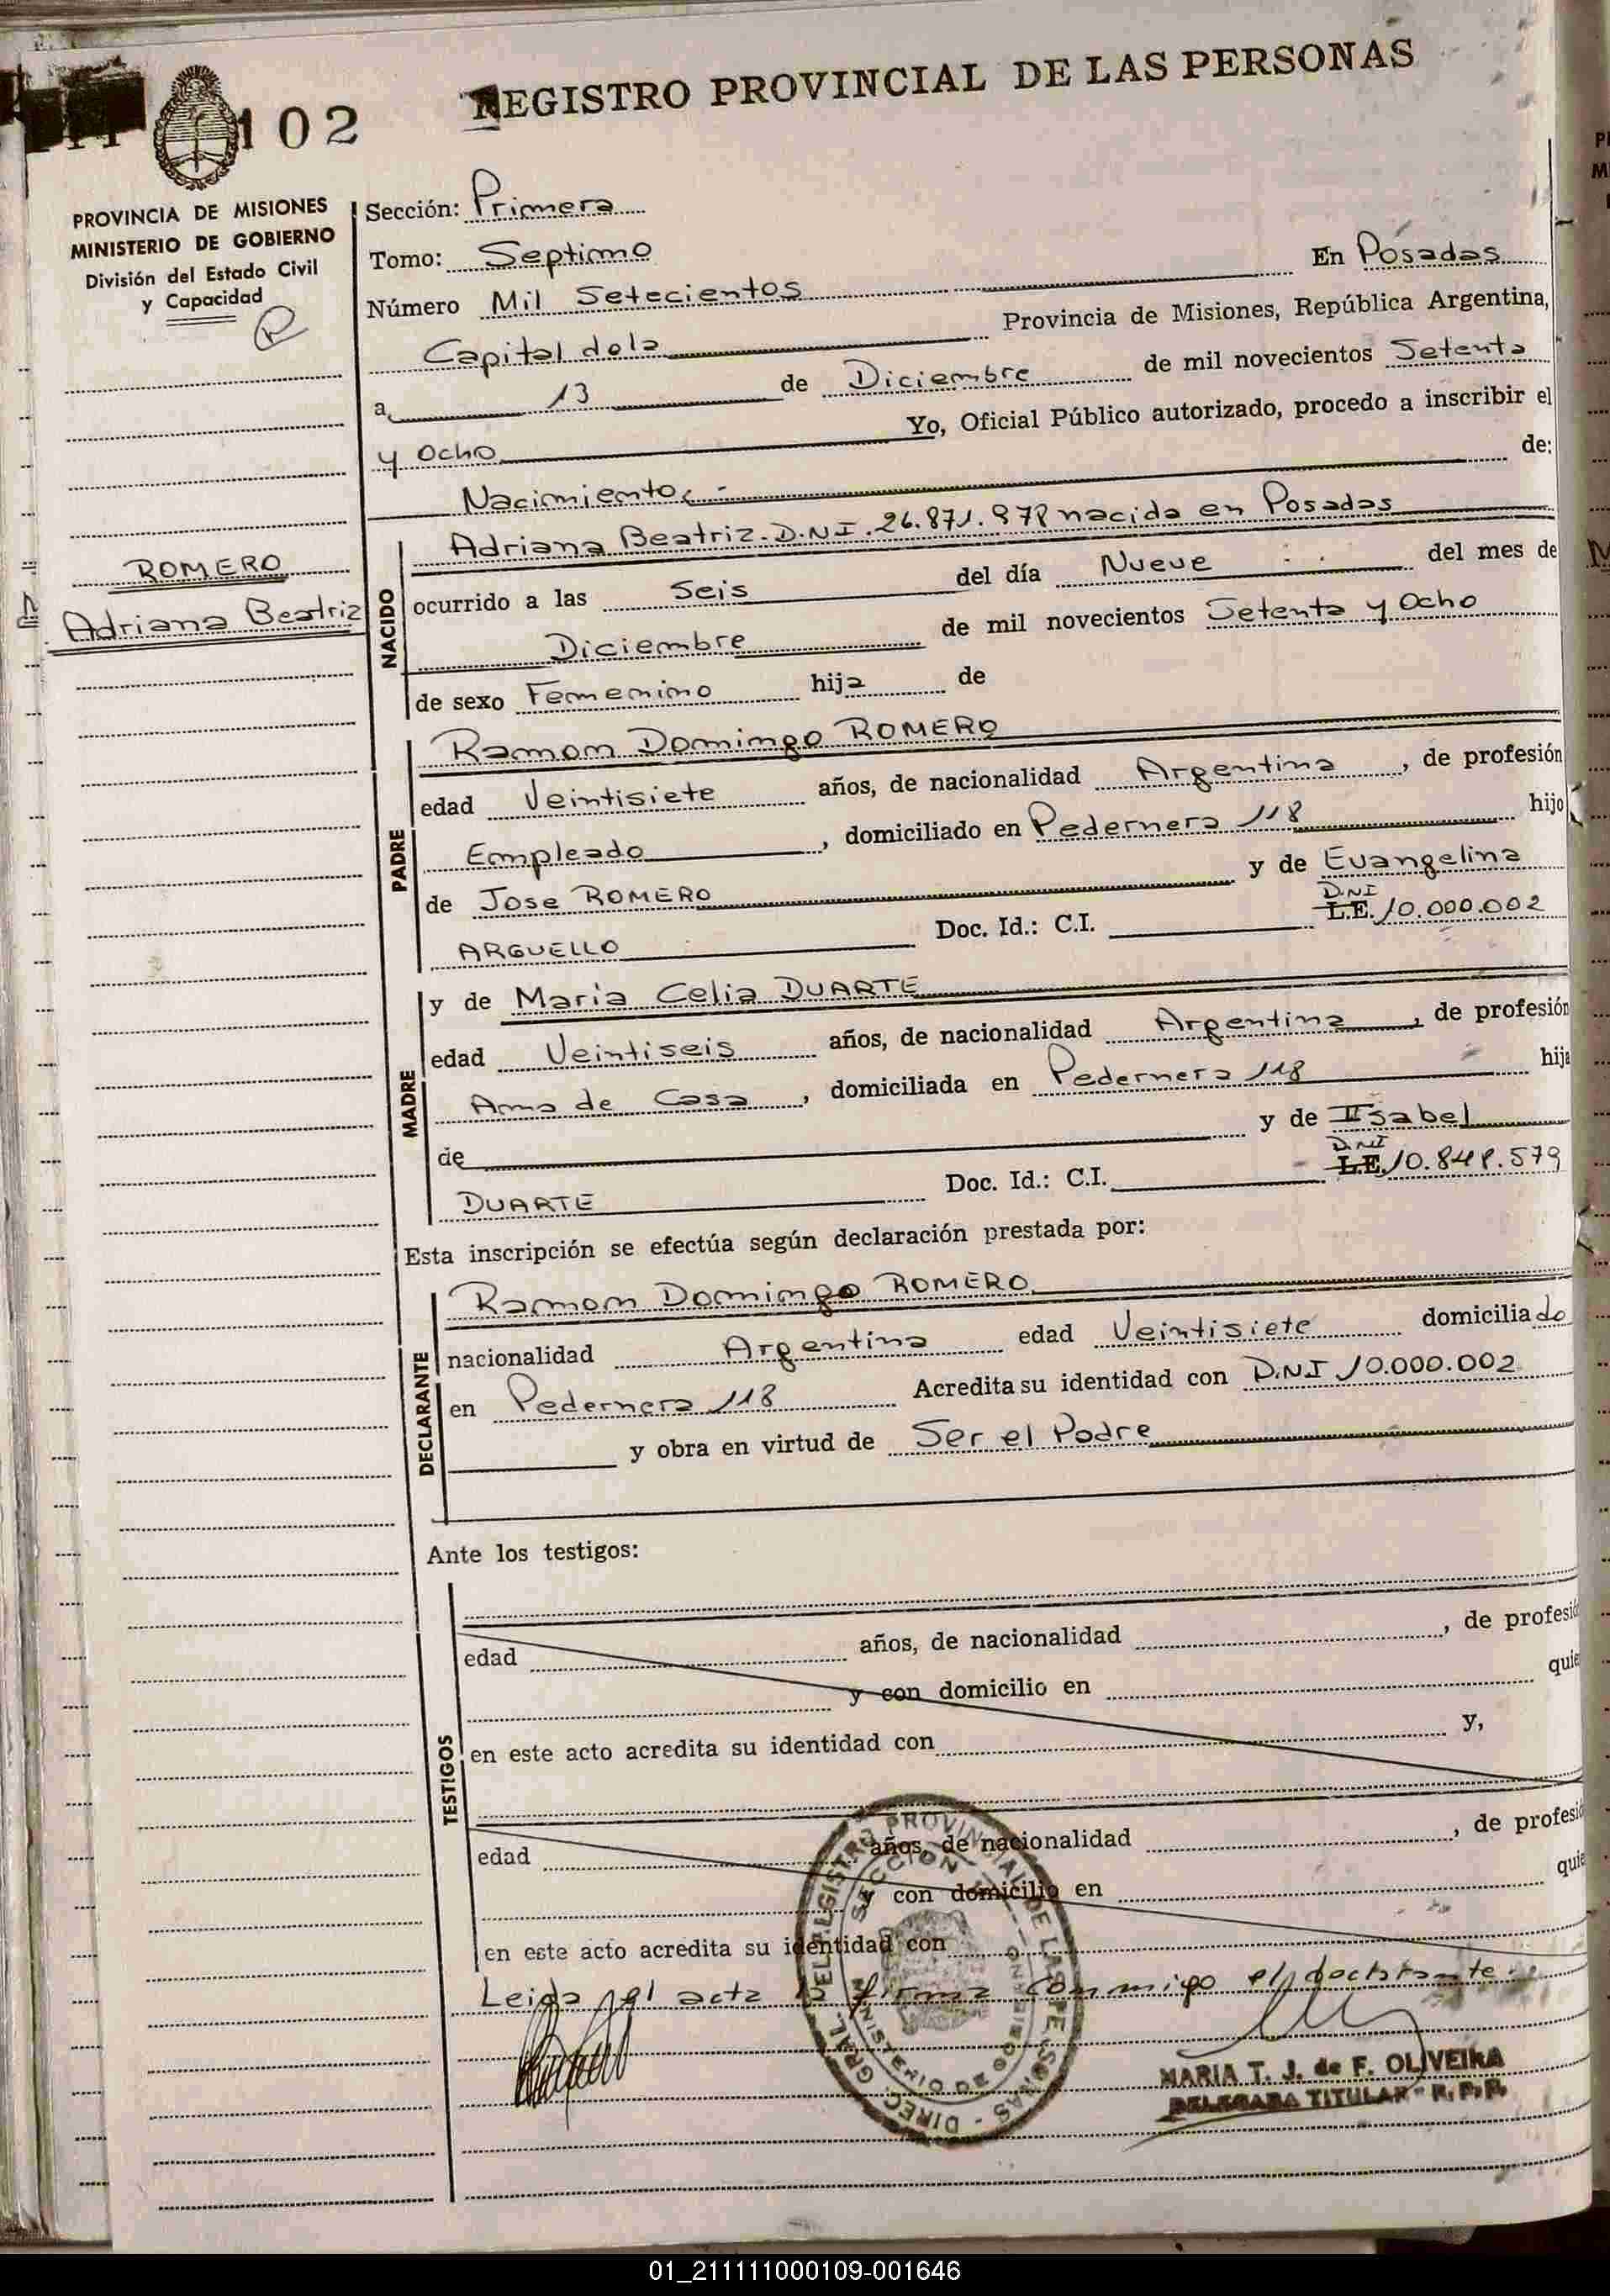 REGISTRO PROVINCIAL DE LAS PERSONAS
102
PROVINCIA DE MISIONES
MINISTERIO DE GOBIERNO
División del Estado Civil
y Capacidad
ROMERO
Adriana Beatriz
Sección: Primera
Tomo: Septimo
En Posadas
Número Mil Setecientos
Capital de la Provincia de Misiones, República Argentina,
a 13 de Diciembre de mil novecientos Setenta
y Ocho Yo, Oficial Público autorizado, procedo a inscribir el
Nacimiento de:
NACIDO
Adriana Beatriz. D.N.I. 26.871.978 nacida en Posadas
ocurrido a las Seis del día Nueve del mes de
Diciembre de mil novecientos Setenta y Ocho
de sexo Femenino hija de
PADRE
Ramon Domingo ROMERO
edad Veintisiete años, de nacionalidad Argentina, de profesión
Empleado, domiciliado en Pedernera 118 hijo
de Jose ROMERO y de Evangelina
ARGUELLO Doc. Id.: C.I. L.E. DNI 10.000.002
MADRE
y de Maria Celia DUARTE
edad Veintiseis años, de nacionalidad Argentina, de profesión
Ama de Casa, domiciliada en Pedernera 118 hija
de y de Isabel
DUARTE Doc. Id.: C.I. L.E. DNI 10.848.579
Esta inscripción se efectúa según declaración prestada por:
DECLARANTE
Ramon Domingo ROMERO
nacionalidad Argentina edad Veintisiete domiciliado
en Pedernera 118 Acredita su identidad con D.N.I 10.000.002
y obra en virtud de Ser el Padre
Ante los testigos:
TESTIGOS
edad años, de nacionalidad , de profesió
y con domicilio en quie
en este acto acredita su identidad con y,
edad años, de nacionalidad , de profesió
y con domicilio en quie
en este acto acredita su identidad con
Leida el acta la firma conmigo el declarante
MARIA T. J. de F. OLIVEIRA
DELEGADA TITULAR - R.P.P.
01_211111000109-001646